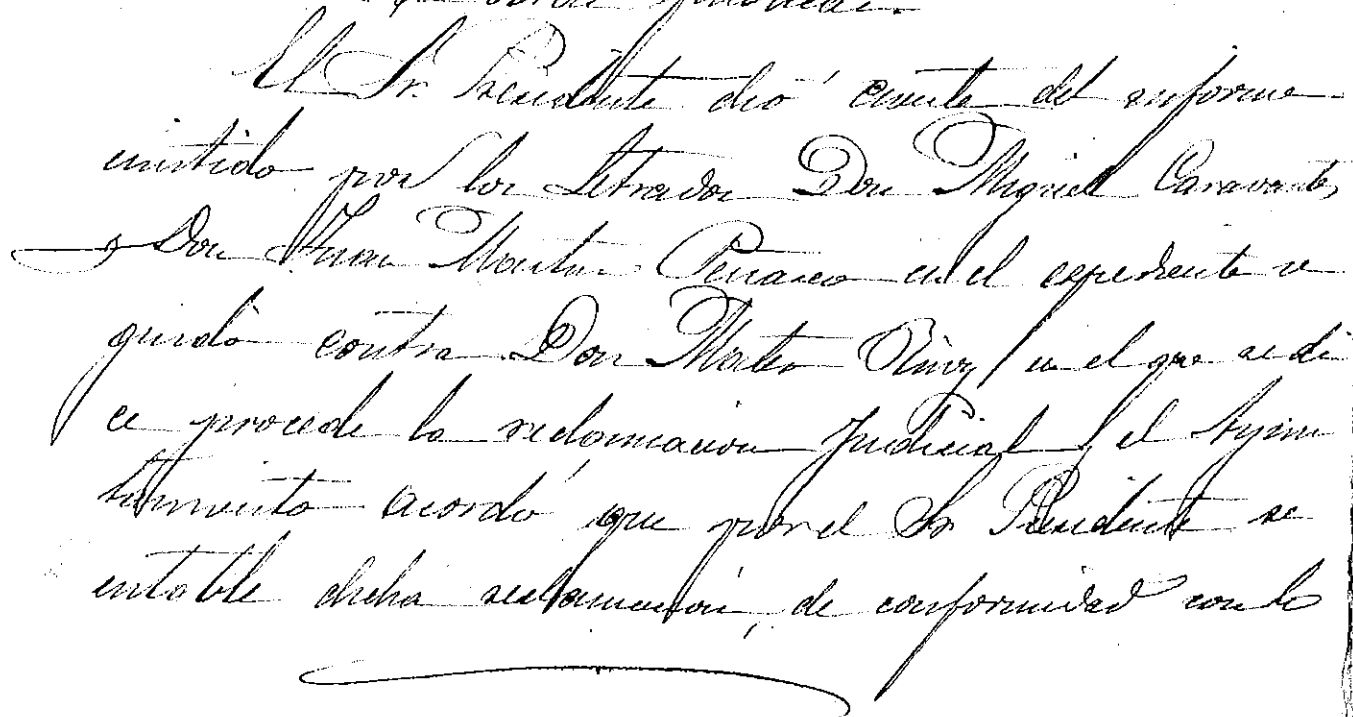 El Sr. Presidente dió cuenta del informe
emitido por los Letrados Don Miguel Caravantes
y Don Juan Martin Penasco en el expediente se
guido contra Don Mateo en el que se di
ce procede la reclamacion Judicial y el Ayun
tamiento acordó que por el Sr Presidente se
entable dicha reclamacion, de conformidad con lo